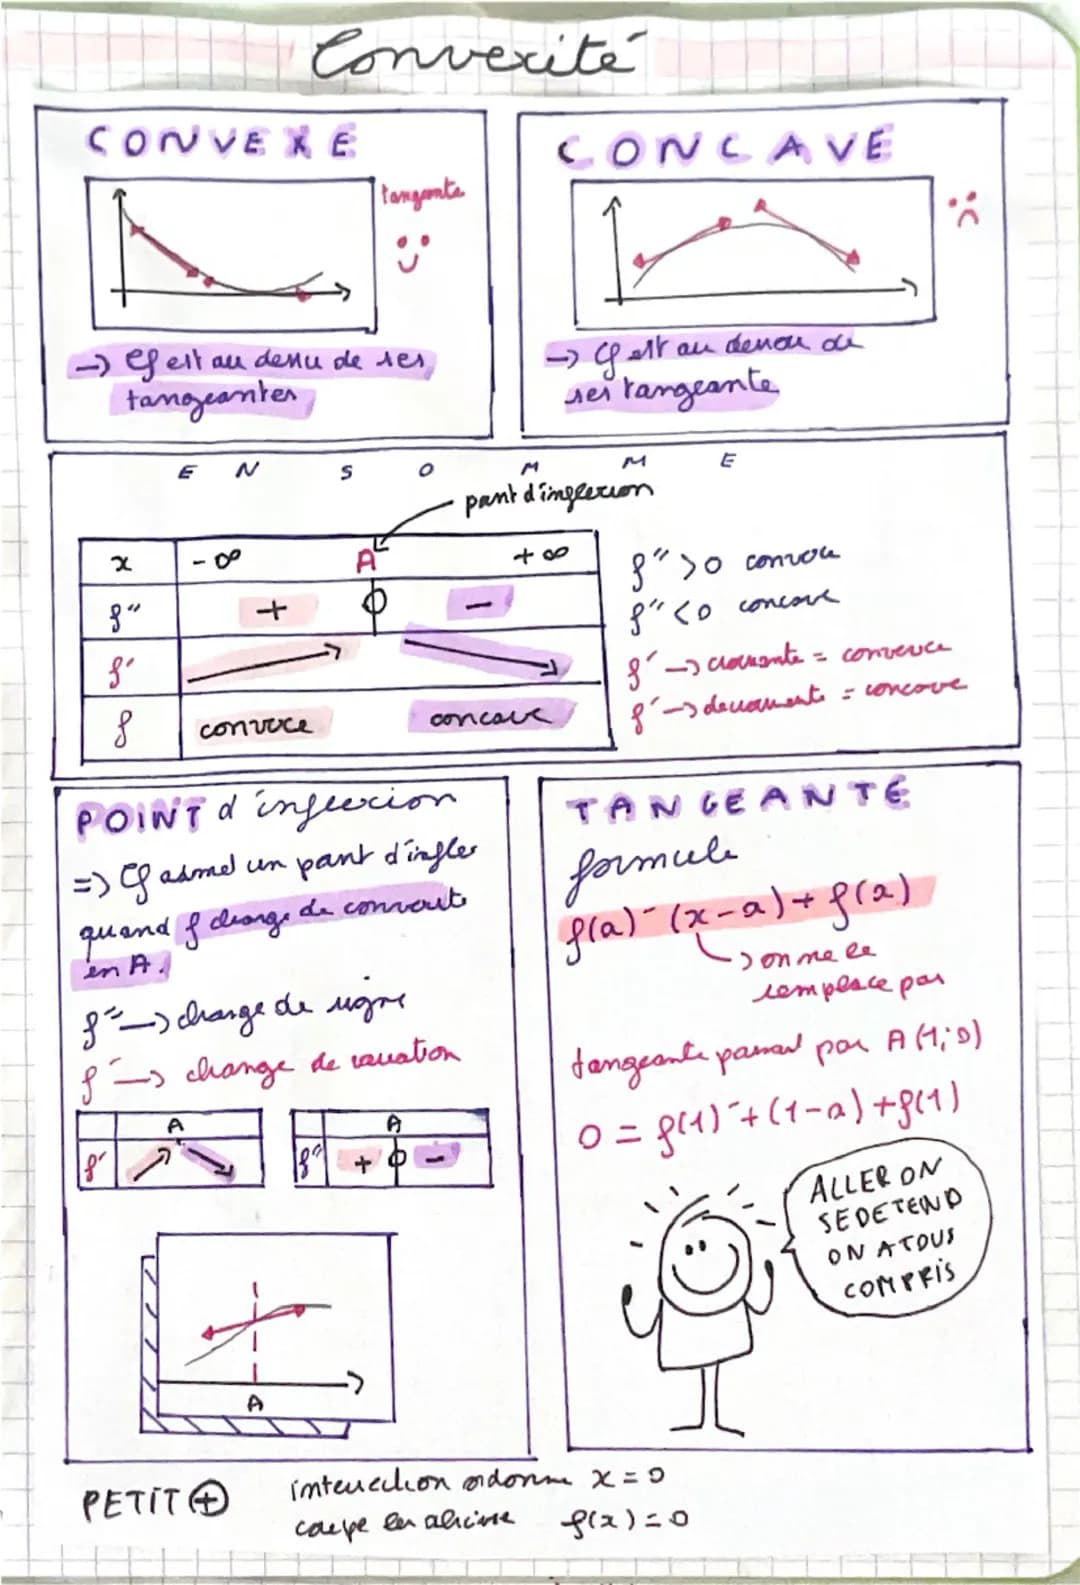 Convexité
CONVEXE
tangente
→ Cf est au dessu de ses
tangeantes
CONCAVE
→ Cf est au dessou de
ses tangeante
EN SOMME
point d'inflexion
x -∞ A +∞
f'' + 0 -
f'
f convexe concave
f'' > 0 convexe
f'' < 0 concave
f' → croissante = convexe
f' → decroissante = concave
POINT d'inflexion
=> Cf admet un point d'inflex
quand f change de convexité
en A.
f'' → change de signe
f' → change de variation
A
f'
A
f'' + 0 -
A
TANGEANTE
formule
f(a)' (x-a) + f(a)
→ on ne le
remplace pas
tangeante passant par A (1;0)
0 = f(1)' + (1-a) + f(1)
ALLER ON
SE DETEND
ON A TOUS
COMPRIS
PETIT ⊕
intersection ordonne x = 0
coupe les abscisse f(x) = 0